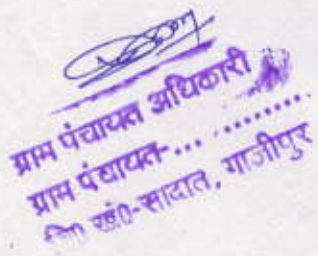 ग्राम पंचायत अधिकारी
ग्राम पंचायत-... .........
वि0 खं0-सादात, गाजीपुर